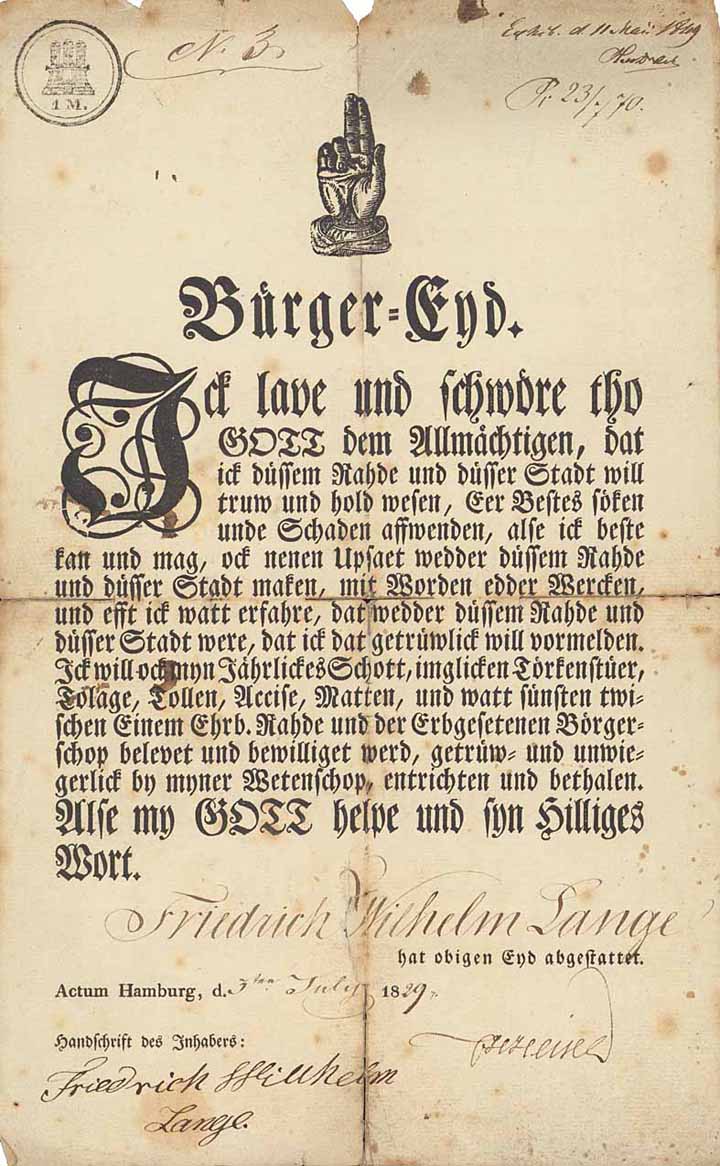 No. 3
Exhib. d 11 Mai 1849
Pr 23/7/70.
1 M.
Bürger=Eyd.
Ick lave und schwöre tho
GOTT dem Allmächtigen, dat
ick düssem Rahde und düsser Stadt will
truw und hold wesen, Eer Bestes söken
unde Schaden affwenden, alse ick beste
kan und mag, ock nenen Upsaet wedder düssem Rahde
und düsser Stadt maken, mit Worden edder Wercken,
und efft ick watt erfahre, dat wedder düssem Rahde und
düsser Stadt were, dat ick dat getrüwlick will vormelden.
Ick will ock myn Jährlickes Schott, imglicken Törkenstüer,
Tolage, Tollen, Accise, Matten, und watt sünsten twi=
schen Einem Ehrb. Rahde und der Erbgesetenen Börger=
schop belevet und bewilliget werd, getrüw= und unwie=
gerlick by myner Wetenschop, entrichten und bethalen.
Alse my GOTT helpe und syn Hilliges
Wort.
Friedrich Wilhelm Lange
hat obigen Eyd abgestattet.
Actum Hamburg, d. 3ten July 1829.
Handschrift des Inhabers:
Friedrich Willhelm
Lange.